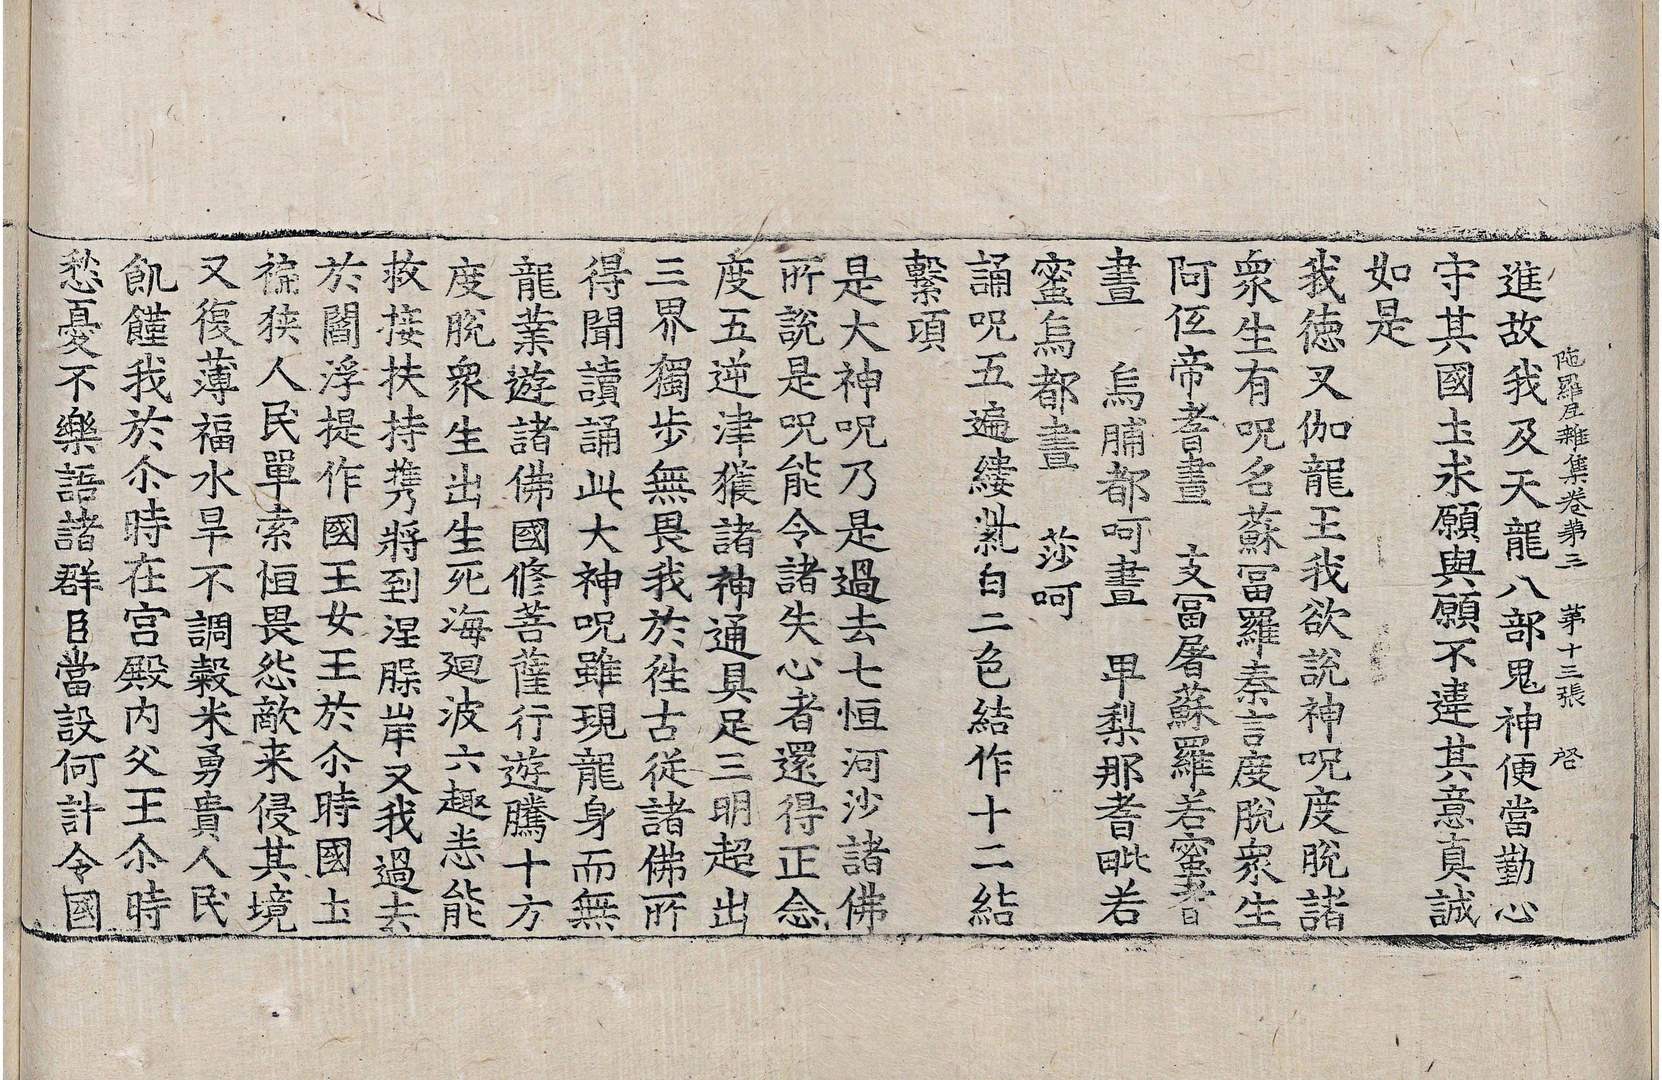 陁羅尼雜集卷第三 第十三張 啓
進故我及天龍八部鬼神便當勤心
守其國土求願與願不違其意真誠
如是
我德叉伽龍王我欲說神呪度脫諸
衆生有呪名蘇冨羅秦言度脫衆生
阿伭帝耆晝 支冨屠蘇羅若蜜耆
晝 烏脯都呵晝 甲梨那耆毗若
蜜烏都晝 莎呵
誦呪五遍縷紫白二色結作十二結
繫項
是大神呪乃是過去七恒河沙諸佛
所說是呪能令諸失心者還得正念
度五逆津獲諸神通具足三明超出
三界獨步無畏我於徃古從諸佛所
得聞讀誦此大神呪雖現龍身而無
龍業遊諸佛國修菩薩行遊騰十方
度脫衆生出生死海廻波六趣恚能
救接扶持携將到涅縣岸又我過去
於閻浮提作國王女王於尒時國土
褊狹人民單索恒畏怨敵来侵其境
又復薄福水旱不調穀米勇貴人民
飢饉我於尒時在宫殿内父王尒時
愁憂不樂語諸群臣當設何計令國